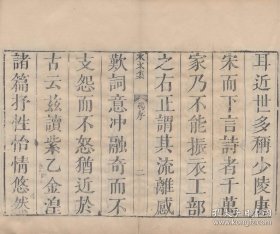 耳近世多稱少陵唐
宋而下言詩者千萬
家乃不能振衣工部
之右正謂其流離感
歎詞意冲融竒而不
支怨而不怒猶近於
古云兹讀紫乙金湟
諸篇抒性怡情悠然